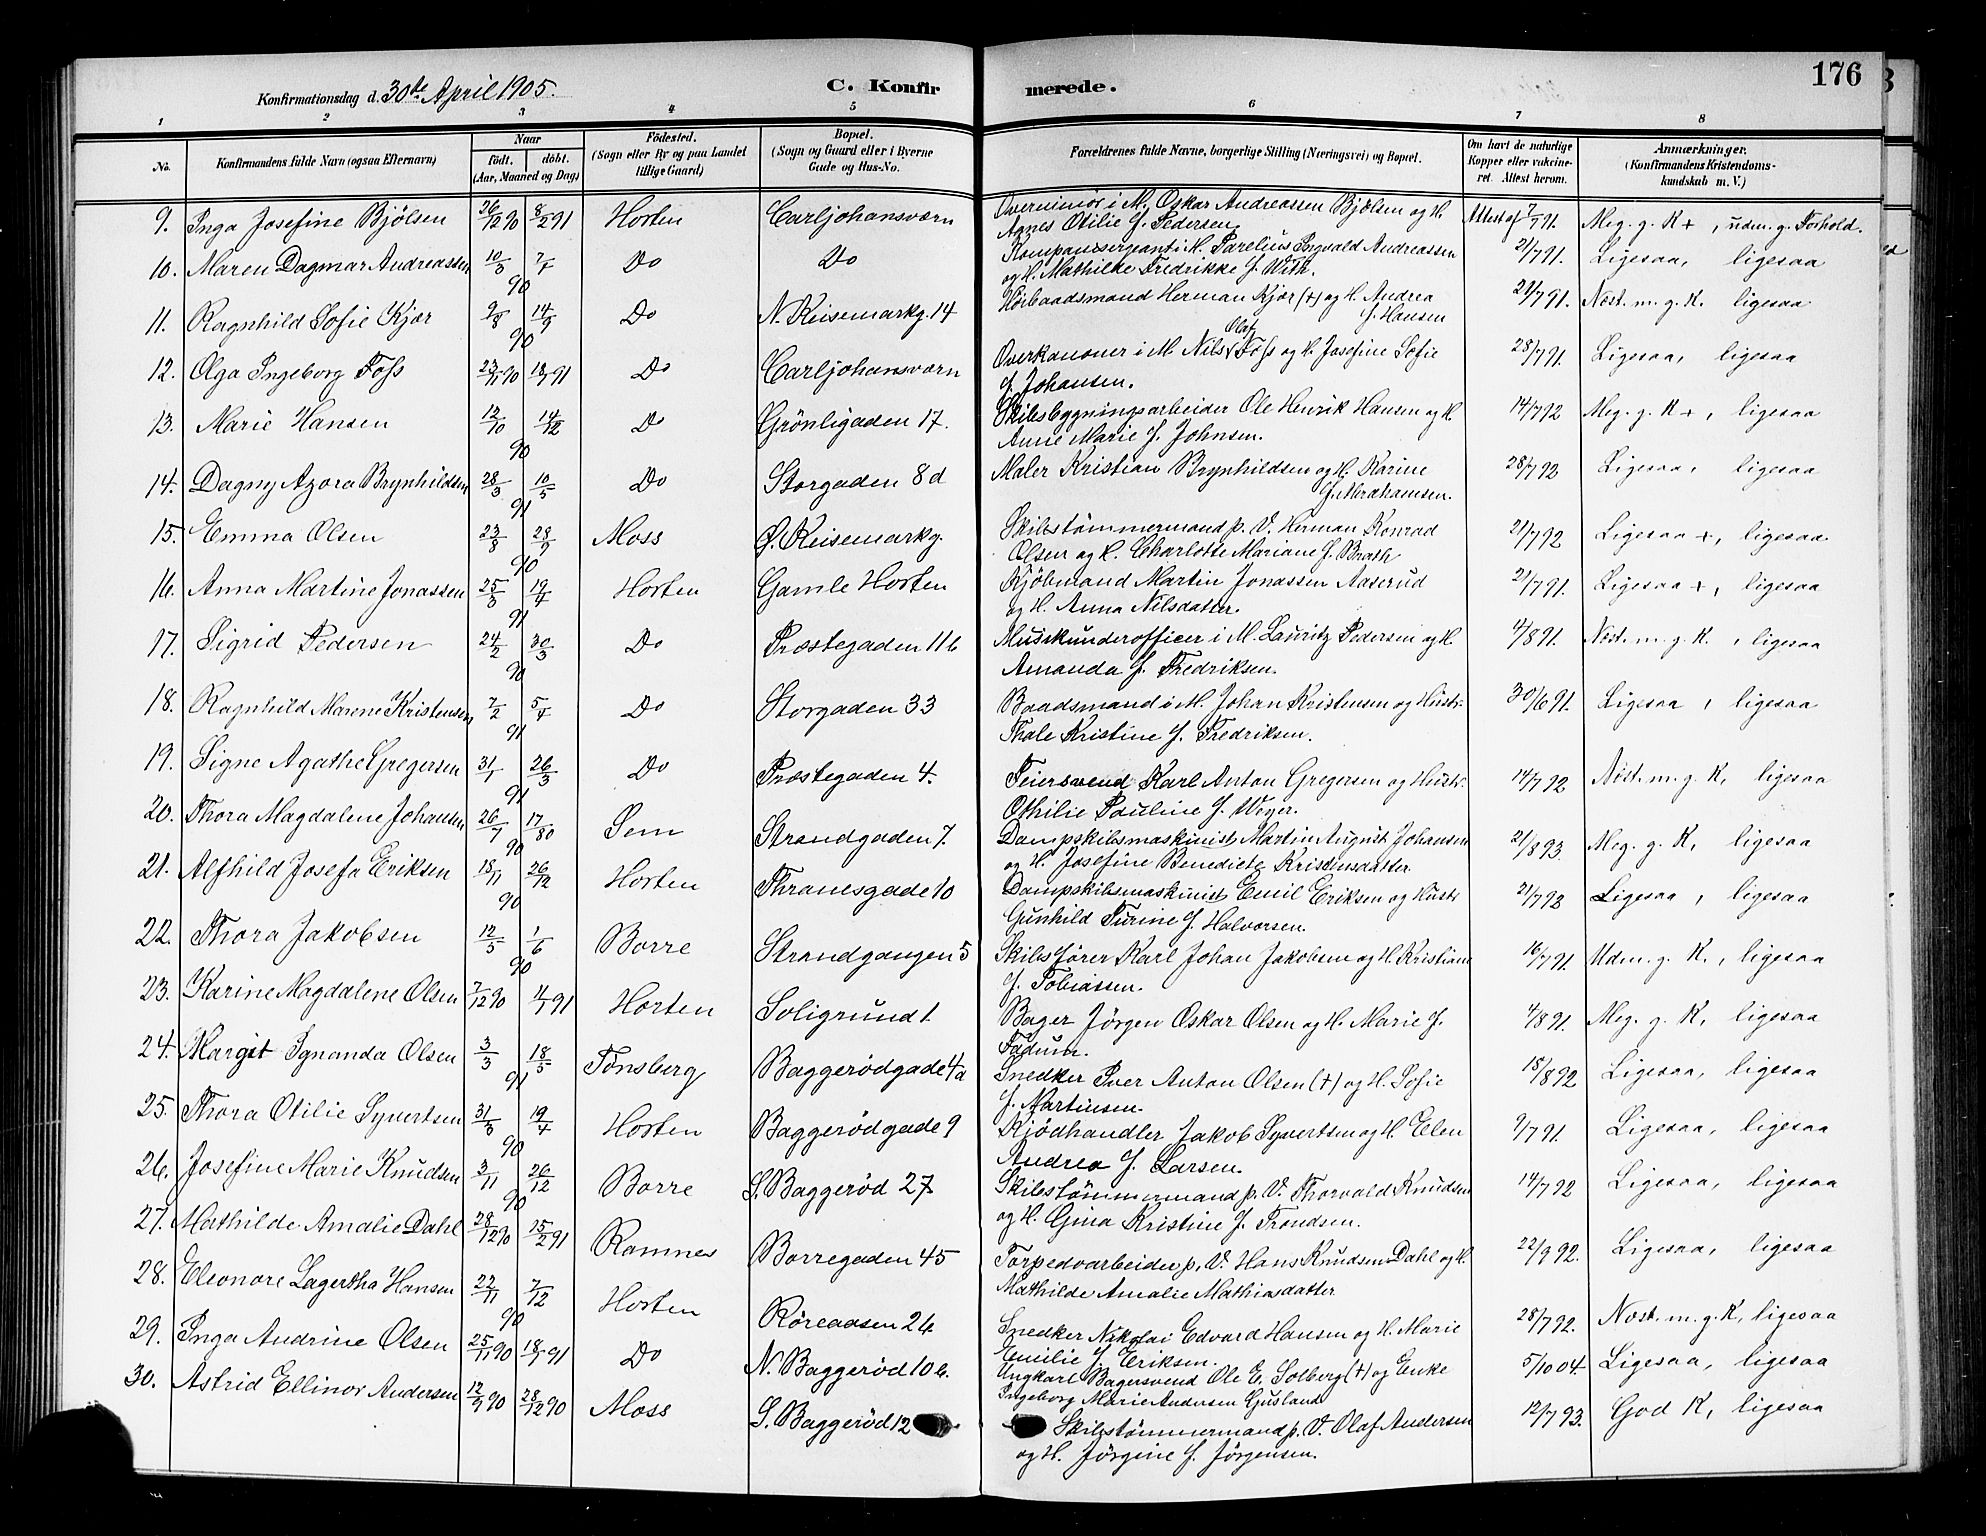 176
Konfirmationsdag d. 30de April 1905.
C. Konfirmerede.
1 2 3 4 5 6 7 8
No. Konfirmandens fulde Navn (ogsaa Efternavn) Naar født. døbt. (Aar, Maaned og Dag) Fødested. (Sogn eller By og paa Landet tillige Gaard) Bopæl. (Sogn og Gaard eller i Byerne Gade og Hus-No. Forældrenes fulde Navne, borgerlige Stilling (Næringsvei) og Bopæl. Om havt de naturlige Kopper eller vakcineret. Attest herom. Anmærkninger. (Konfirmandens Kristendomskundskab m. V.)
9. Inga Josefine Bjölsen 26/12 90 8/2 91 Horten Carljohansværn Overminör i M. Oskar Andreassen Bjölsen og H. Agnes Otilie f. Pedersen Attest af 7/7 91. Meg. g. K +, udm. g. Forhold.
10. Maren Dagmar Andreassen 10/3 7/4 90 Do Do Kompanisergeant i M. Parelius Ingvald Andreassen og H. Mathilke Fredrikke f. With. 21/7 91. Ligesaa, ligesaa
11. Ragnhild Sofie Kjær 9/8 14/9 90 Do N. Keisemarkg. 14 Höibaadsmand Herman Kjær (+) og H. Andrea f. Hansen 21/7 91. Næst. m. g. K. ligesaa
12. Olga Ingeborg Foss 23/11 90 18/1 91 Do Carljohansværn Overkanoner i M. Nils Olaf Foss og H. Josefine Sofie f. Johansen. 28/7 91. Ligesaa, ligesaa
13. Marie Hansen 12/10 14/12 90 Do Grönligaden 17. Skibsbygningsarbeider Ole Henrik Hansen og H. Anne Marie f. Johnsen. 14/7 92 Meg. g. K +, ligesaa
14. Dagny Azora Brynhildsen 28/3 10/5 91 Do Storgaden 8 d Maler Kristian Brynhildsen og H. Karine f. Abrahamsen. 28/7 92 Ligesaa, ligesaa
15. Emma Olsen 23/8 28/9 90 Moss Ö. Keisemarkg. Skibstömmermand p. V. Herman Konrad Olsen og H. Charlotte Mariane f. Brath 21/7 92 Ligesaa +, ligesaa.
16. Anna Martine Jonassen 25/3 19/4 91 Horten Gamle Horten Kjöbmand Martin Jonassen Aaserud og H. Anna Nilsdatter. 21/7 91. Ligesaa +, ligesaa
17. Sigrid Pedersen 24/2 30/3 90 Do Præstegaden 11 b Musikunderofficer i M. Lauritz Pedersen og H. Amanda f. Fredriksen. 4/8 91. Næst. m. g. K. , ligesaa
18. Ragnhild Marene Kristensen 7/2 5/4 91 Do Storgaden 33 Baadsmand i M. Johan Kristensen og Hustr. Thale Kristine f. Fredriksen. 30/6 91. Ligesaa , ligesaa
19. Signe Agathe Gregersen 31/1 26/3 91 Do Præstegaden 4. Feiersvend Karl Anton Gregersen og Hustr. Othilie Pauline f. Weyer. 14/7 92 Næst. m. g. K, ligesaa
20. Thora Magdalene Johansen 26/7 17/80 90 Sem Strandgaden 7. Dampskibsmaskinist Martin August Johansen og H. Josefine Benedicte Kristensdatter. 21/8 93. Meg. g. K, ligesaa
21. Alfhild Josefa Eriksen 18/11 26/12 90 Horten Thranesgade 10 Dampskibsmaskinist Emil Eriksen og Hustr. Gunhild Turine f. Halvorsen. 21/7 92 Ligesaa , ligesaa
22. Thora Jakobsen 12/5 1/6 90 Borre Strandgangen 5 Skibsförer Karl Johan Jakobsen og H. Kristiane f. Tobiassen. 16/7 91. Udm. g. K., ligesaa
23. Karine Magdalene Olsen 7/12 90 4/1 91 Horten Soligrund 1. Bager Jörgen Oskar Olsen og H. Marie f. Fadum. 4/8 91. Meg. g. K, ligesaa
24. Margit Ignanda Olsen 3/3 18/5 91 Tönsberg Baggerödgade 4a Snedker Iver Anton Olsen (+) og H. Sofie f. Martinsen. 18/8 92 Ligesaa, ligesaa
25. Thora Otilie Syvertsen 31/3 19/4 90 Horten Baggerödgade 9 Kjödhandler Jakob Syvertsen og H. Elen Andrea f. Larsen. 9/7 91. Ligesaa, ligesaa
26. Josefine Marie Knudsen 3/11 26/12 90 Borre S. Baggeröd 27 Skibstömmermand p. V. Thorvald Knudsen og H. Gina Kristine f. Trondsen. 14/7 92 Ligesaa, ligesaa
27. Mathilde Amalie Dahl 28/12 90 15/2 91 Ramnes Borregaden 45 Torpedoarbeider p. V. Hans Knudsen Dahl og H. Mathilde Amalie Mathiasdatter 22/9 92. Ligesaa, ligesaa
28. Eleonore Lagertha Hansen 22/11 7/12 90 Horten Röreaasen 26 Snedker Nikolai Edvard Hansen og H. Marie Emilie f. Eriksen. 28/7 92. Næst. m. g. K, ligesaa
29. Inga Andrine Olsen 25/11 90 18/1 91 Do N. Baggeröd 10 b. Ungkarl Bagersvend Ole E. Solberg (+) og Enke Ingeborg Marie Andersen Gjusland 5/10 04. Ligesaa, ligesaa
30. Astrid Ellinor Andersen 12/9 90 28/12 90 Moss S. Baggeröd 12 Skibstömmermand p. V. Olaf Andersen og H. Jörgine f. Jörgensen. 12/7 93. God K, ligesaa